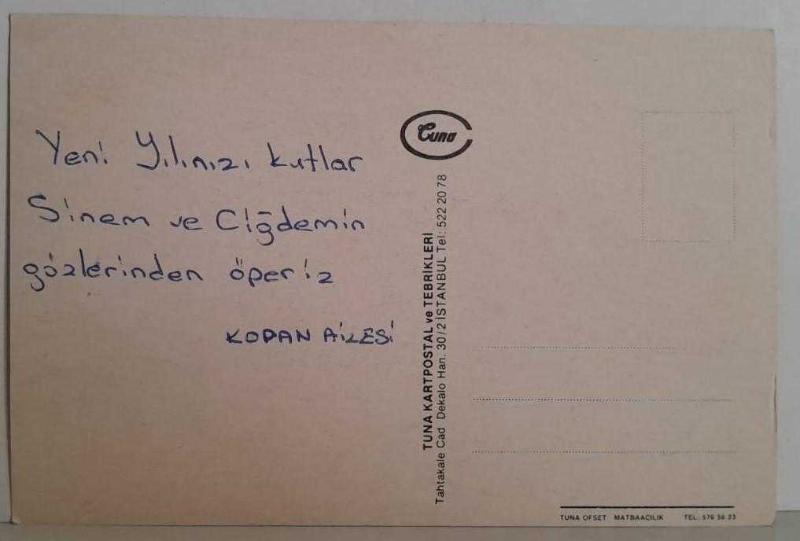 Yeni Yılınızı kutlar
Sinem ve Ciğdemin
gözlerinden öperiz
KODAN AİLESİ
Tuna
TUNA KARTPOSTAL ve TEBRİKLERİ
Tahtakale Cad Dekalo Han. 30/2 İSTANBUL Tel: 522 20 78
TUNA OFSET MATBAACILIK TEL: 576 56 33